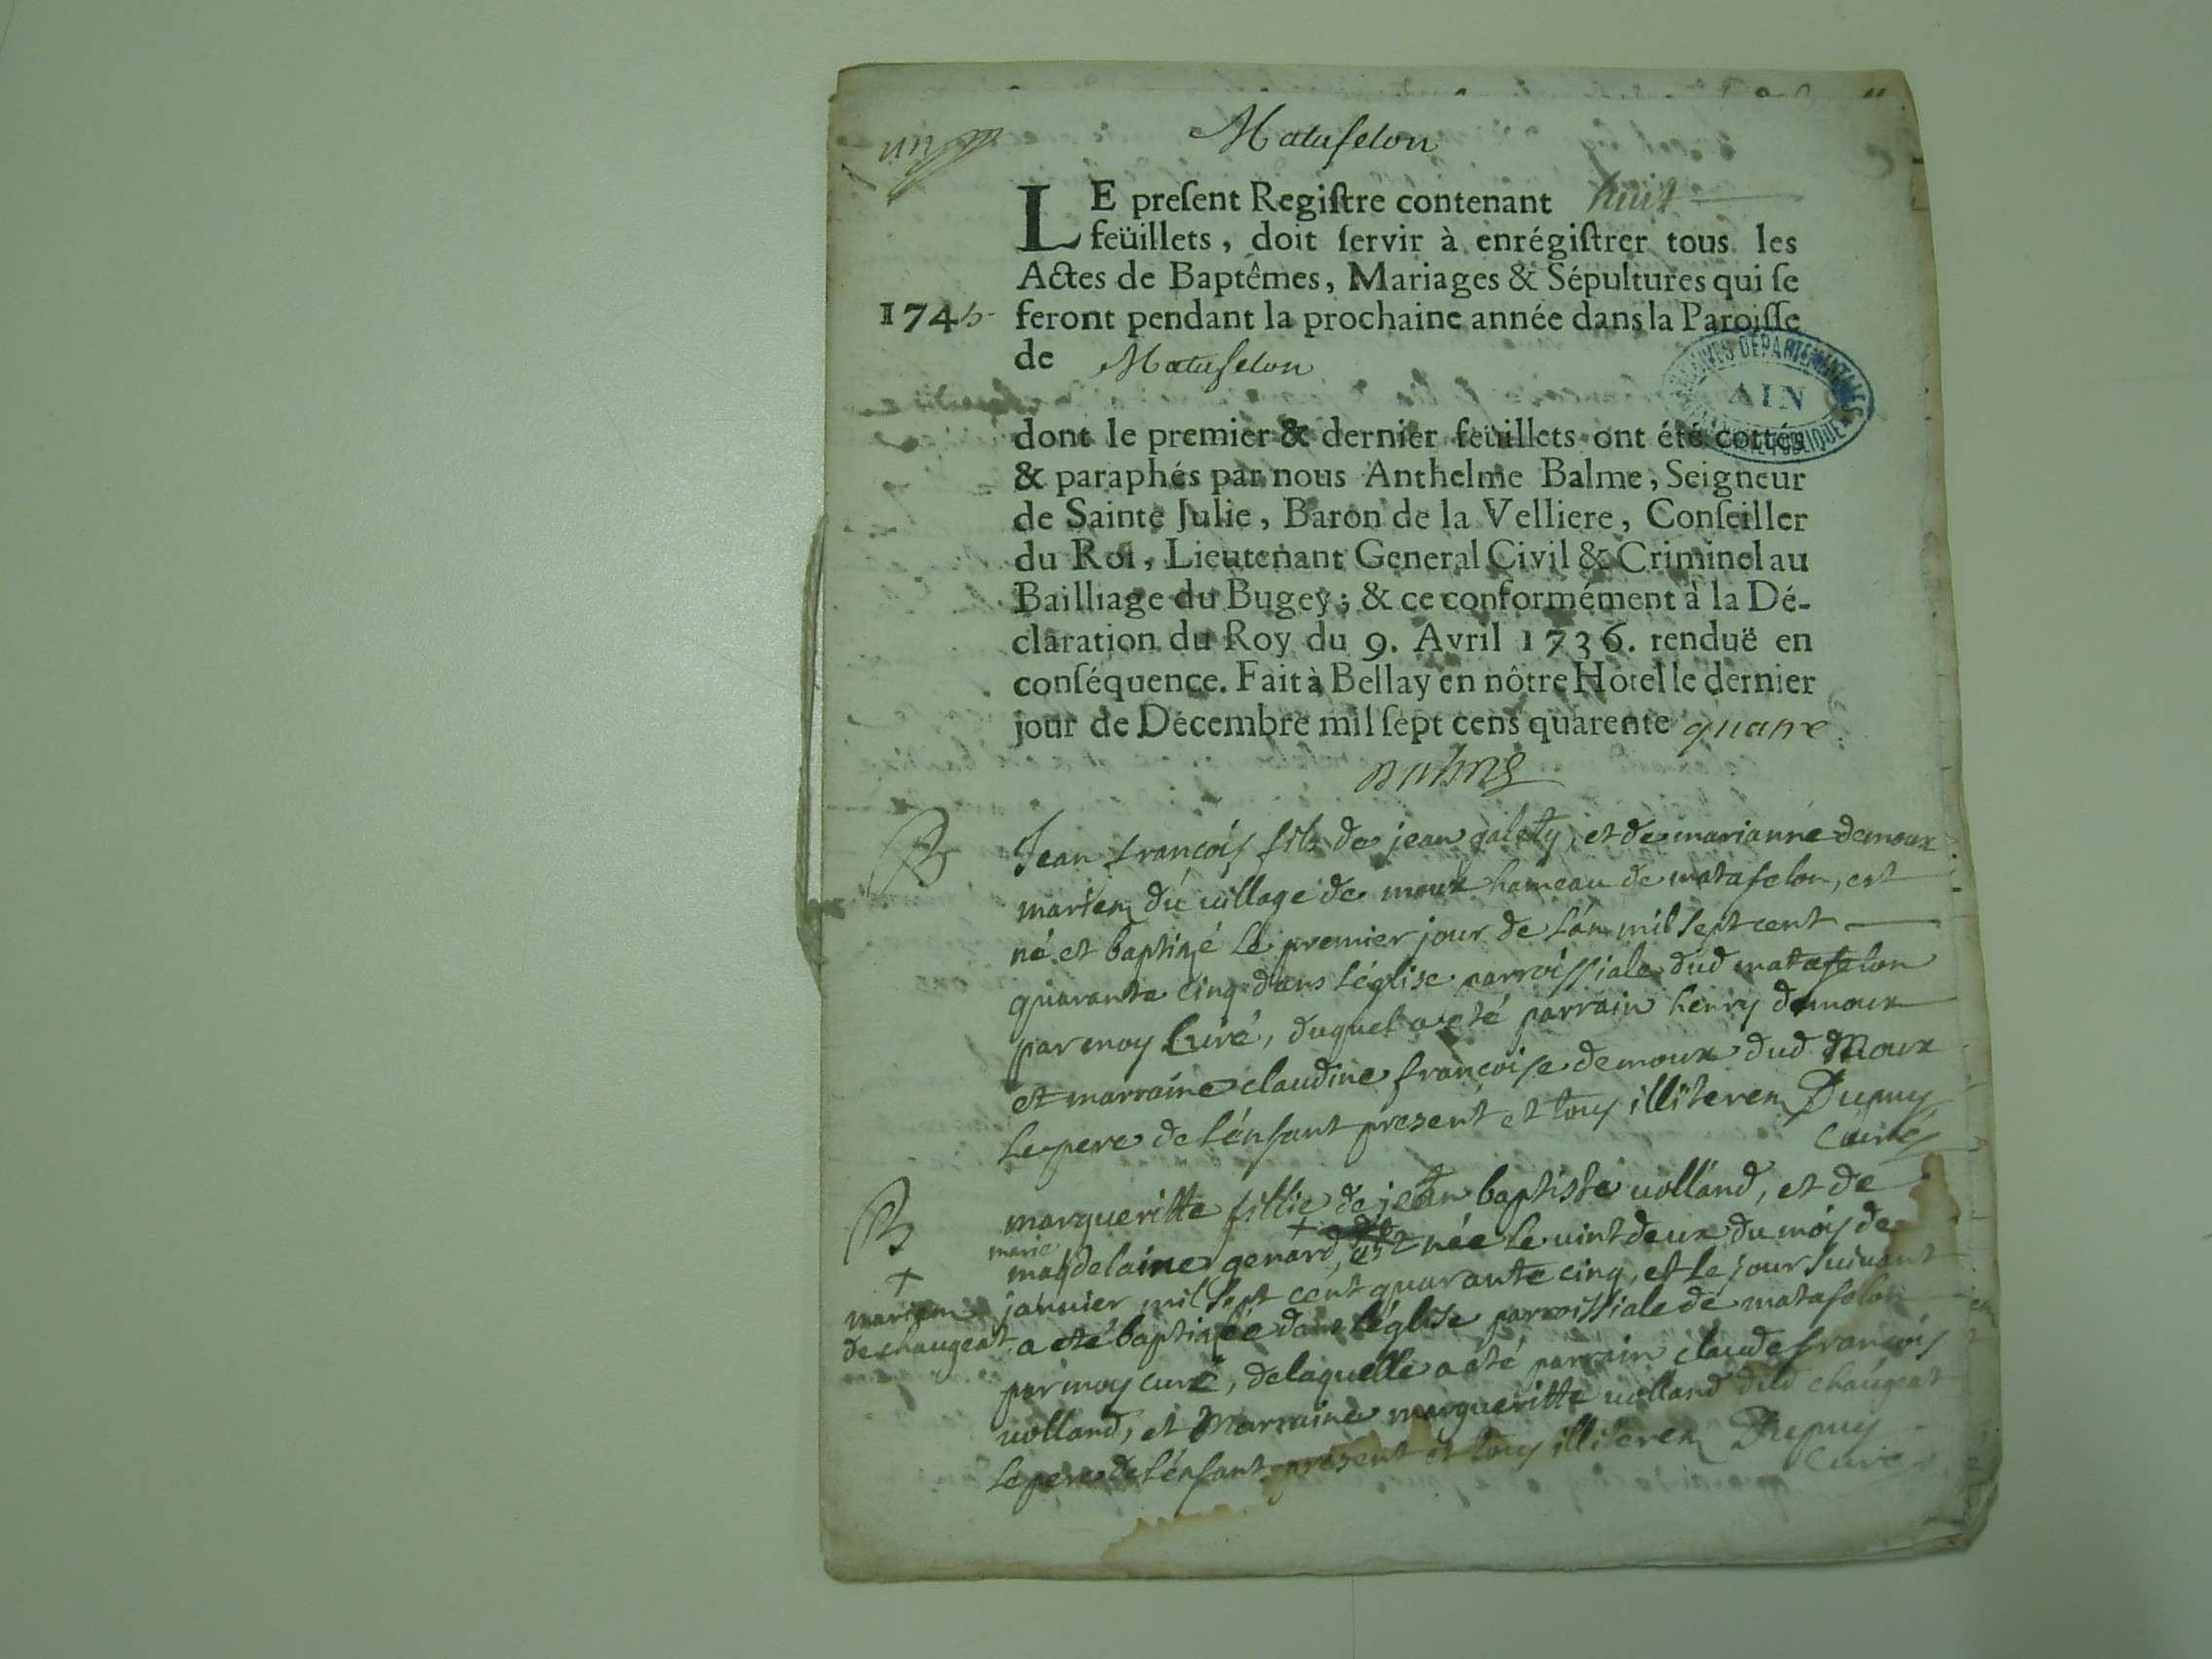 un
Matafelon
LE preſent Regiſtre contenant huit
feüillets, doit ſervir à enrégiſtrer tous les
Actes de Baptêmes, Mariages & Sépultures qui ſe
1745 feront pendant la prochaine année dans la Paroiſſe
de Matafelon
ARCHIVES DEPARTEMENTALES
AIN
dont le premier & dernier feüillets ont été cottés
& paraphés par nous Anthelme Balme, Seigneur
de Sainte Julie, Baron de la Velliere, Conſeiller
du Roi, Lieutenant General Civil & Criminel au
Bailliage du Bugey; & ce conformément à la Dé-
claration du Roy du 9. Avril 1736. renduë en
conſéquence. Fait à Bellay en nôtre Hôtel le dernier
jour de Décembre mil ſept cens quarente quatre
B
Jean françois fils de jean galéty, et de marianne demoux
mariez du village de moux hameau de matafelon, est
né et baptizé le premier jour de l'an mil sept cent
quarante cinq dans l'église parroissiale dud matafelon
par moy Curé, duquel a été parrain henry demoux
et marraine claudine françoise demoux dud Moux
le pere de l'énfant présent et tous illiterez Dupuy
Curé
B
margueritte fillie de jean baptiste uolland, et de
marie
magdelaine genard, + est née le uint deux du mois de
januier mil sept cént quarante cinq, et le jour suiuant
+
mariez
de chaugeat
a été baptizée dans l'églse parroissiale de matafelon
par moy curé, de laquelle a été parrain claude françois
uolland, et Marraine margueritte uolland dud chaugeat
le pere de l'énfant présent et tous illiterez Dupuy
Curé